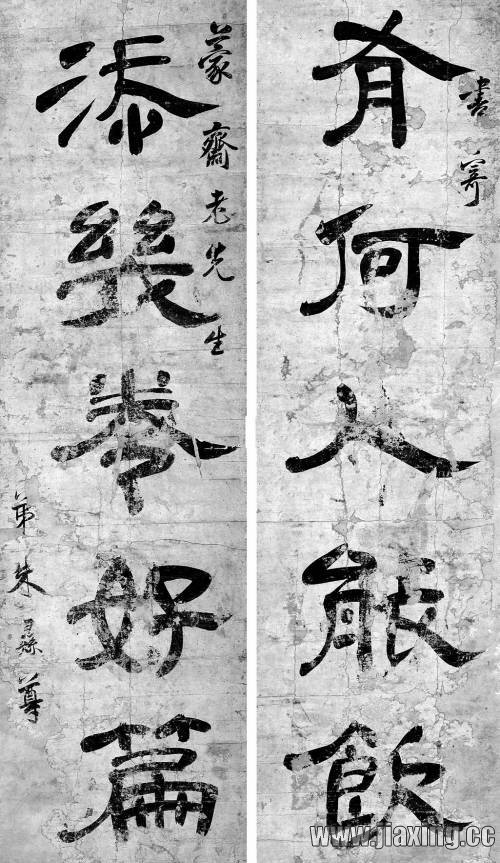 書寄
有何人能飲
蒙齋老先生
添幾卷好篇
弟朱彝尊
www.jiaxing.cc